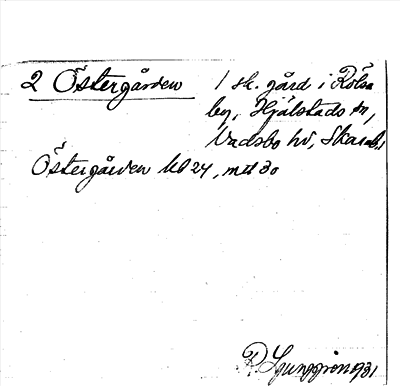 2 Östergården
1 sk. gård i Rölsa
by, Hjälstads sn,
Vadsbo hd, Skarab.
Östergården KB 24, mtl 30
R. Ljunggren 1931